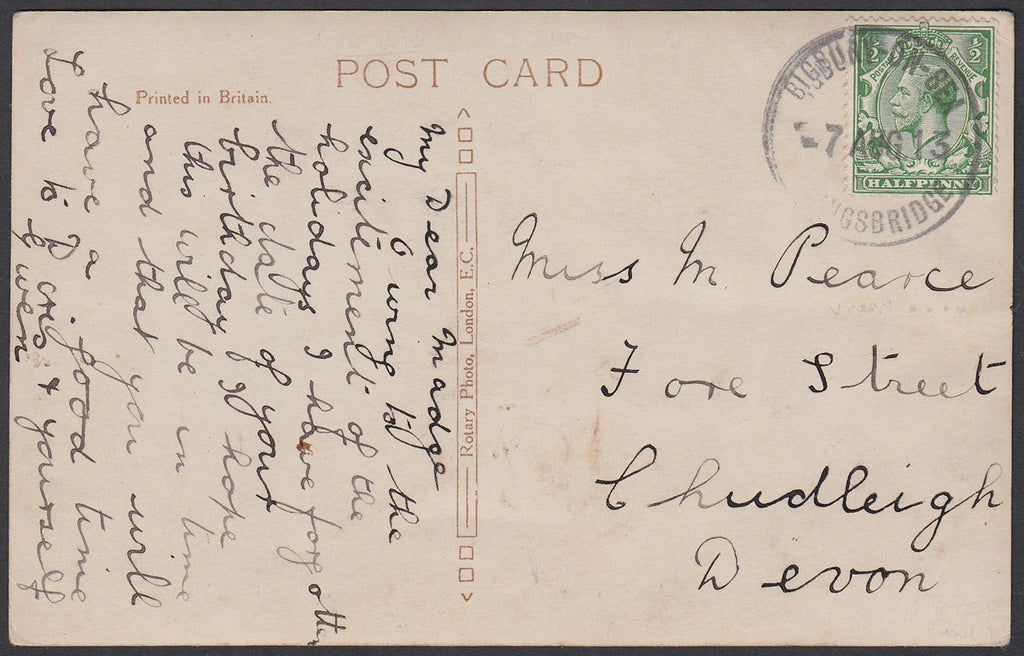 POST CARD
Printed in Britain.
BIGBURY-ON-SEA
7 AUG 13
KINGSBRIDGE
½ ½
POSTAGE REVENUE
HALFPENNY
My Dear Madge
Owing to the
excitement of the
holidays I have forgotten
the date of your
birthday I hope
this will be in time
and that you will
have a good time
Love to Doris & yourself
Gwen
Rotary Photo, London, E.C.
Miss M. Pearce
Fore Street
Chudleigh
Devon